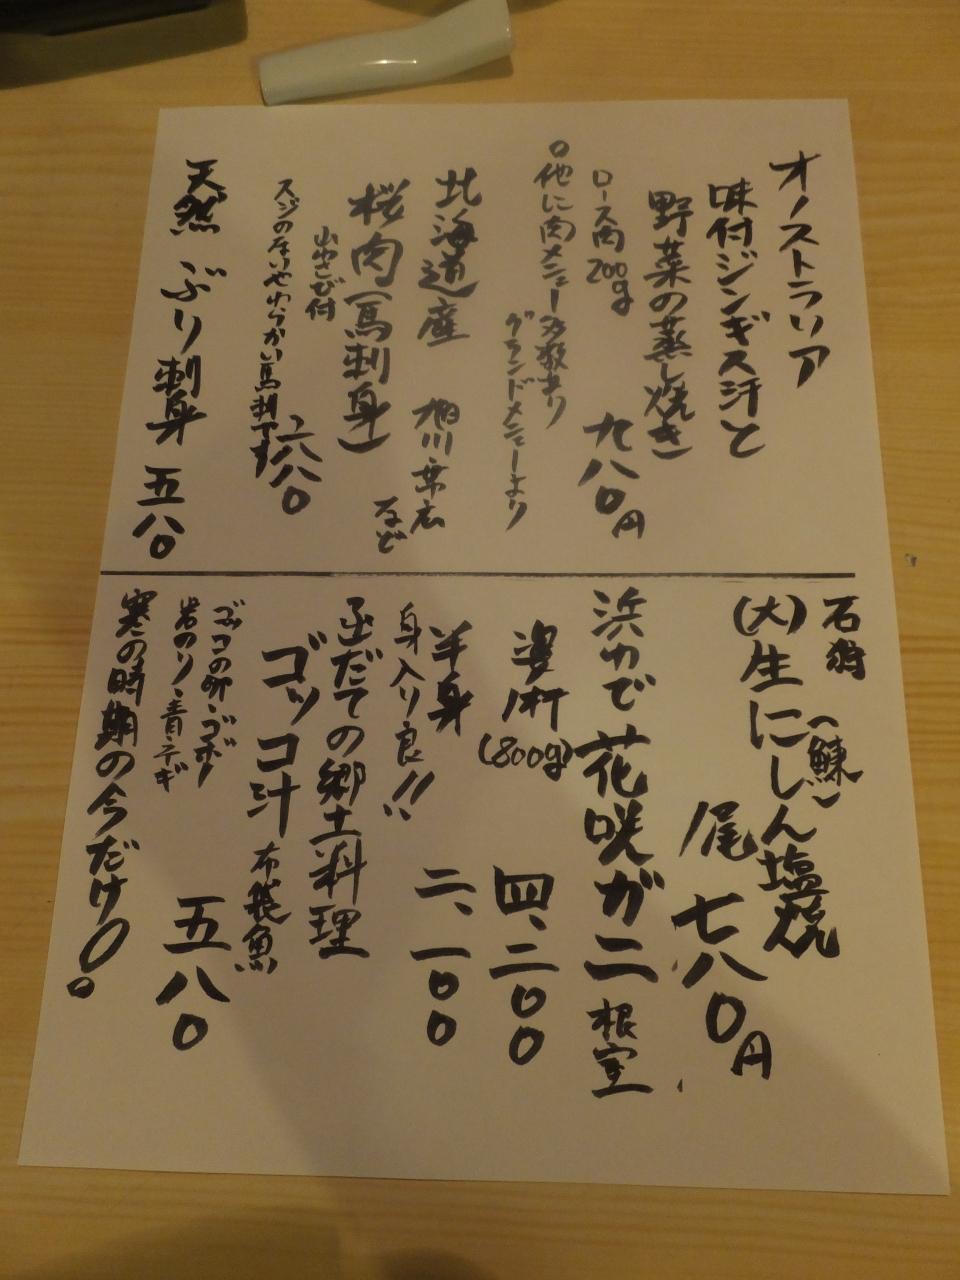 オーストラリア
味付ジンギス汗と
野菜の蒸し焼き
ロース肉200g
九八〇円
○他に肉メニュー多数あり
グランドメニューより
北海道産
旭川・帯広
など
桜肉(馬刺身)
山わさび付
二六八〇
スジのないやわらかい馬刺です
天然 ぶり刺身 五八〇
石狩
(大)生にしん塩焼
(鰊)
一尾 七八〇円
浜ゆで花咲ガニ 根室
姿一杯
(800g)
四、二〇〇
半身
二、一〇〇
身入り良!!
函だての郷土料理
ゴッコ汁 布袋魚
ゴッコの卵・ゴボー
岩のり・青ネギ
五八〇
寒の時期の今だけ!。